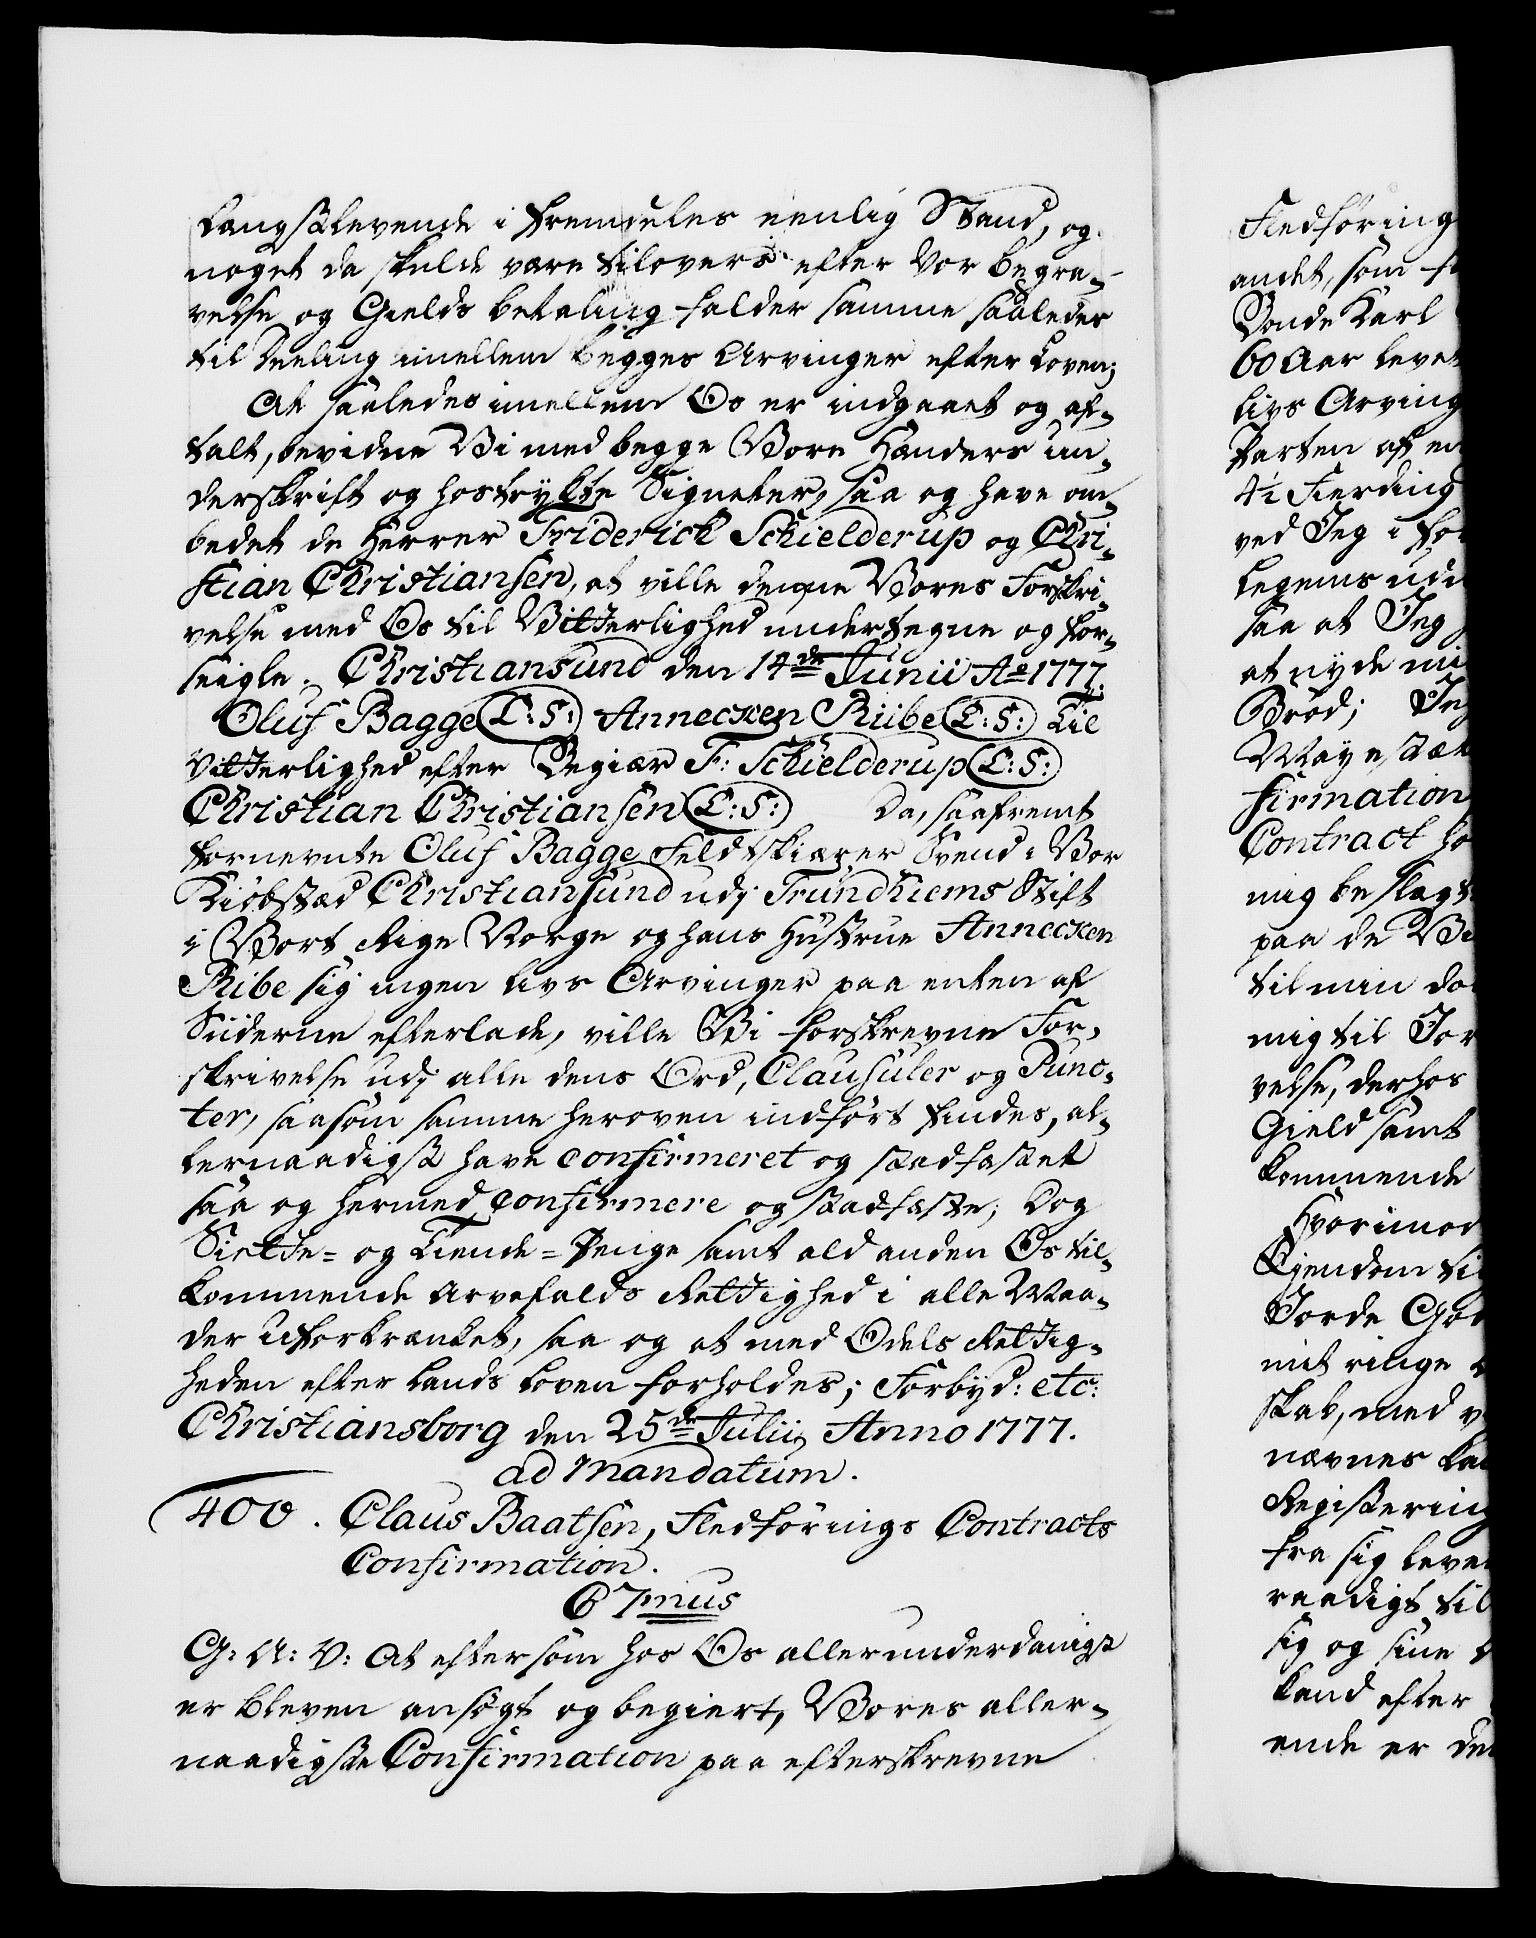 Langstlevende i fremdeles eenlig Stand, og
noget da skulde være tilovers efter Vor begra-
velse og Gields betaling falder samme saaledes
til Deeling imellem begges Arvinger efter Loven;
At saaledes imellem Os er indgaaet og af-
talt, bevidne Vi med begge Vore Hænders un-
derskrift og hostrykte Signeter, saa og have om-
bedet de Herrer Friderich Schielderup og Chri-
stian Christiansen, at ville denne Vores Forskri-
velse med Os til Vitterlighed undertegne og for-
seigle. Christiansund den 14de Junii Ao 1777.
Oluf Bagge (L:S:) Annecken Riibe (L:S:) Til
Vitterlighed efter Begiær F: Schielderup (L:S:)
Christian Christiansen (L:S:) Da, saafremt
fornevnte Oluf Bagge Feldtskiærer Svend i Vor
Kiøbstæd Christiansund udj Trundhiems Stift
i Vort Rige Norge og hans Hustrue Annecken
Ribe sig ingen Livs Arvinger paa enten af
Siiderne efterlade, ville Vi forskrevne For-
skrivelse udj alle dens Ord, Clausuler og Punc-
ter, saasom samme heroven indført findes, al-
lernaadigst have confirmeret og stadfæstet
saa og hermed confirmere og stadfæste; Dog
Siette- og Tiende-Penge samt ald anden Os til-
kommende Arvefalds Rettighed i alle Maa-
der uforkrænket, saa og at med Odels Rettig-
heden efter Lands Loven forholdes; Forbyd: etc:
Christiansborg den 25de Julii Anno 1777.
ad Mandatum.
400. Claus Baatsen, Fledførings Contracts
Confirmation.
C 7mus
G: A: V: At eftersom hos Os allerunderdanigst
er bleven ansøgt og begiert, Vores aller-
naadigste Confirmation paa efterskrevne
Fledføring
andet, som
Bonde Karl
60 Aar levet
Livs Arving
Parten af en
4½ Fierding
ved Jeg i
Legems
saa at Jeg
at nyde mi
Brød; Jeg
firmation
Contract ho
mig beslagt
paa de Ve
til min
mig til Jor
velse, derhos
Gield samt
kommende
Hvorimod
Ejendom
Jorde God
mit ringe
skab, med
nævnes
Registering
fra sig leve
raadigt til
sig og sine
kand efter
ende er